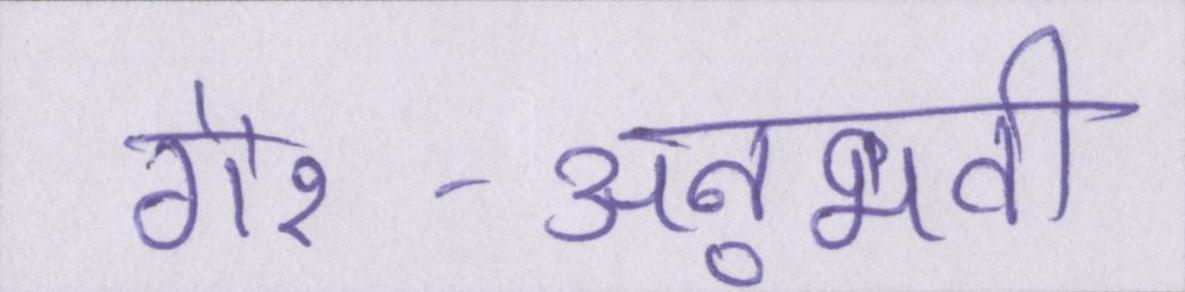 गेर-अनुभवी